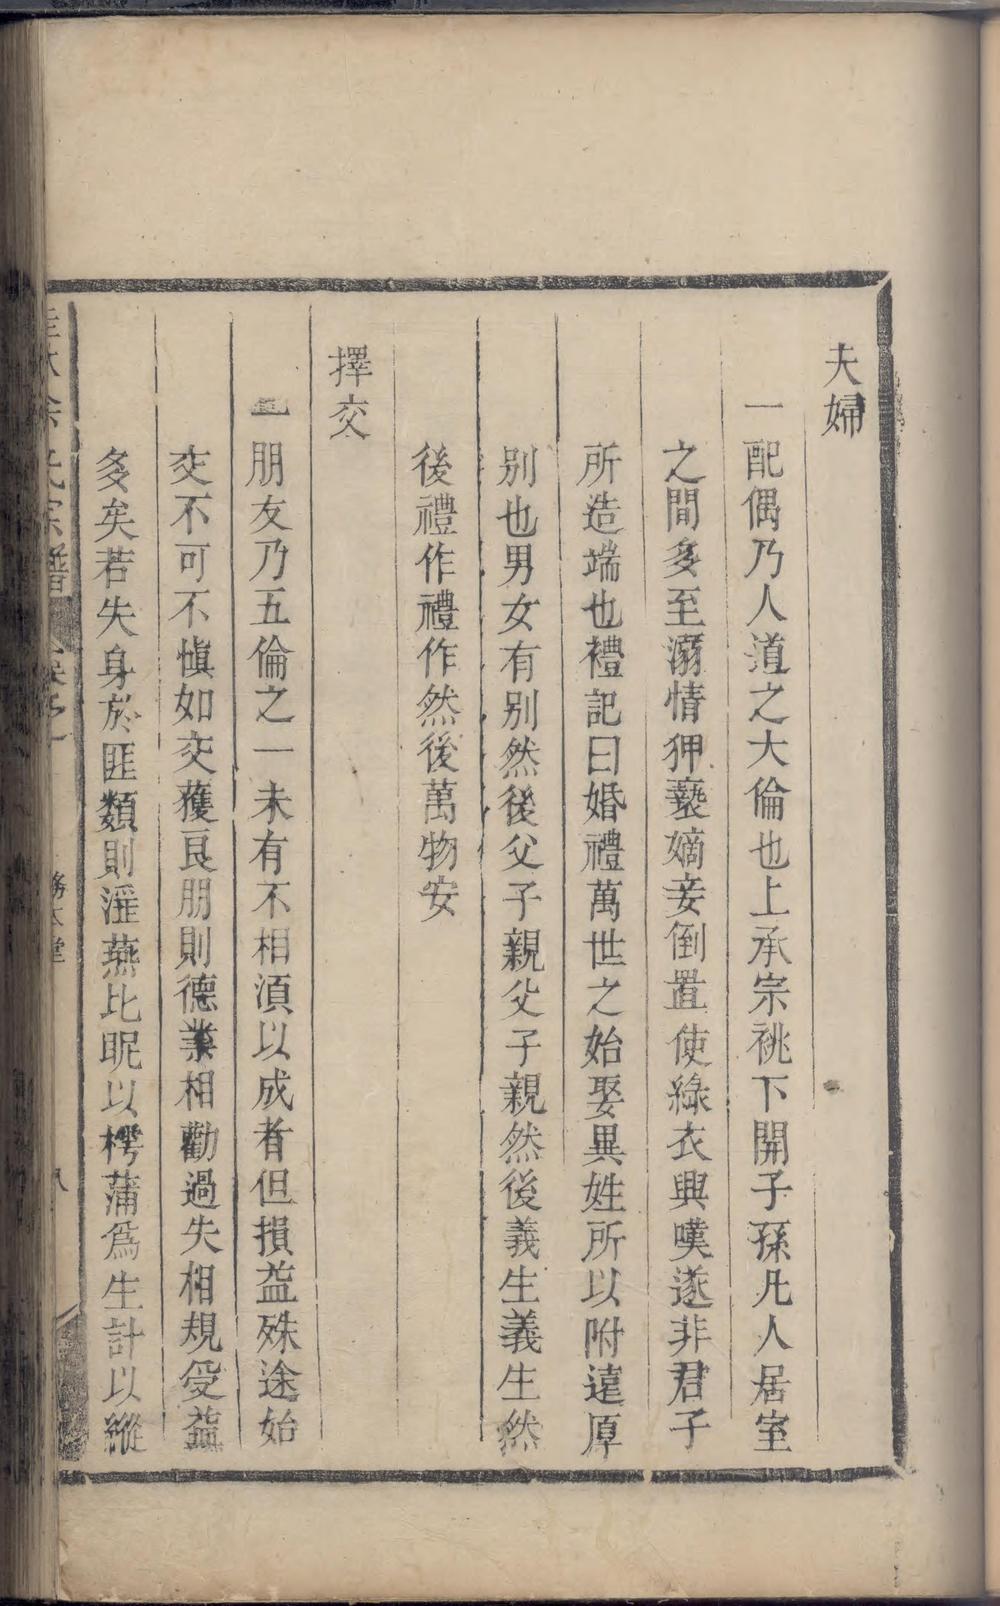 夫婦
一配偶乃人道之大倫也上承宗祧下開子孫凡人居室
之間多至溺情狎褻嫡妾倒置使綠衣興嘆遂非君子
所造端也禮記曰婚禮萬世之始娶異姓所以附遠厚
別也男女有別然後父子親父子親然後義生義生然
後禮作禮作然後萬物安
擇交
一朋友乃五倫之一未有不相須以成者但損益殊途始
交不可不慎如交獲良朋則德業相勸過失相規受益
多矣若失身於匪類則淫燕比昵以樗蒲為生計以縱
氏宗譜